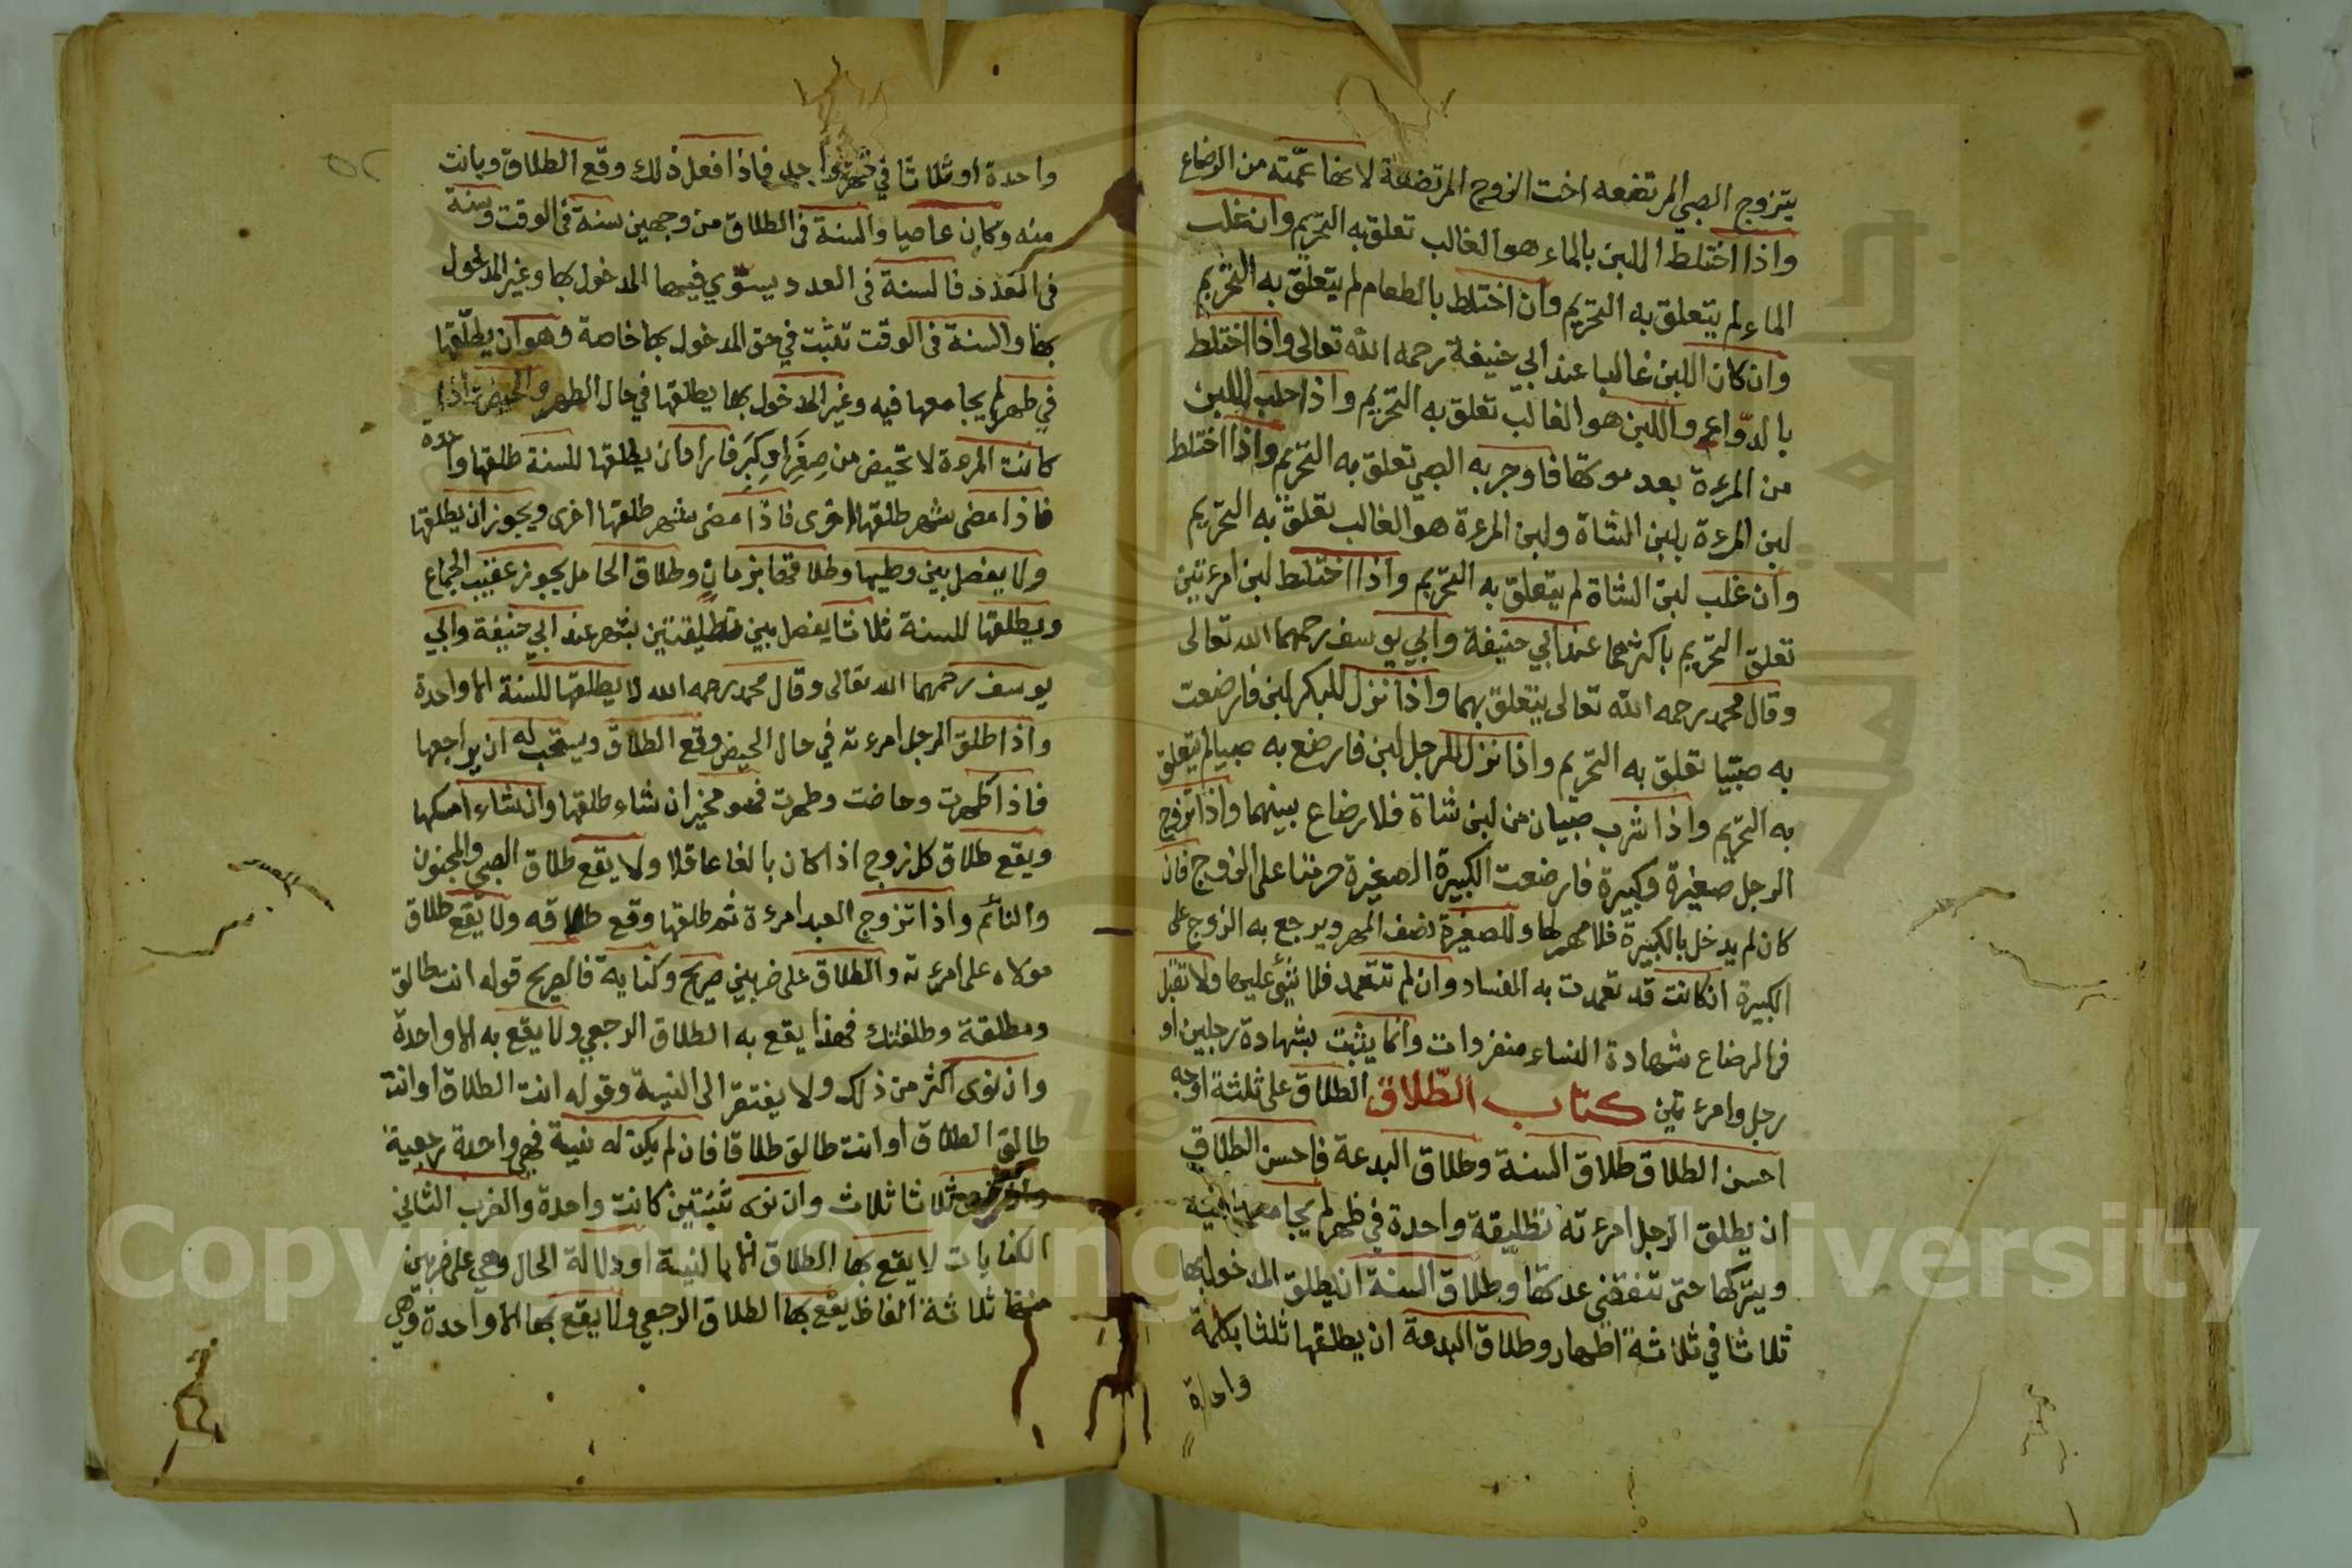 يتزوج الصبي المرتضعه اخت الزوج المرتضعة لانها عمّته من الرضاع
واذا اختلط اللبن بالماء هو الغالب تعلق به التحريم وان غلب
الماء لم يتعلق به التحريم وان اختلط بالطعام لم يتعلق به التحريم
وان كان اللبن غالبا عند ابي حنيفة رحمه الله تعالى واذا اختلط
بالدّواء واللبن هو الغالب تعلق به التحريم واذا حلب اللبن
من المرءة بعد موتها فاوجر به الصبي تعلق به التحريم واذا اختلط
لبن المرءة بلبن الشاة ولبن المرءة هو الغالب تعلق به التحريم
وان غلب لبن الشاة لم يتعلق به التحريم واذا اختلط لبن امرءتين
تعلق التحريم باكثرهما عند ابي حنيفة وابي يوسف رحمهما الله تعالى
وقال محمد رحمه الله تعالى يتعلق بهما واذا نزل للبكر لبن فارضعت
به صبيا تعلق به التحريم واذا نزل للرجل لبن فارضع به صبيا لم يتعلق
به التحريم واذا شرب صبيان من لبن شاة فلا رضاع بينهما واذا تزوج
الرجل صغيرة وكبيرة فارضعت الكبيرة الصغيرة حرمتا على الزوج فان
كان لم يدخل بالكبيرة فلا مهر لها وللصغيرة نصف المهر ويرجع به الزوج على
الكبيرة ان كانت قد تعمدت به الفساد وان لم تتعمد فلا شئ عليها ولا تقبل
في الرضاع شهادة النساء منفردات وانما يثبت بشهادة رجلين او
رجل وامرءتين كتاب الطّلاق الطلاق على ثلثة اوجه
احسن الطلاق طلاق السنة وطلاق البدعة فاحسن الطلاق
ان يطلق الرجل امرءته تطليقة واحدة في طهر لم يجامعها فيه
ويتركها حتى تنقضي عدتها وطلاق السنة ان يطلق المدخول بها
ثلاثا في ثلاثة اطهار وطلاق البدعة ان يطلقها ثلثا بكلمة
واحدة
٥٢
واحدة او ثلاثا في طهر واحد فاذا فعل ذلك وقع الطلاق وبانت
منه وكان عاصيا والسنة في الطلاق من وجهين سنة في الوقت وسنة
في العدد فالسنة في العدد يستوي فيها المدخول بها وغير المدخول
بها والسنة في الوقت تثبت في حق المدخول بها خاصة وهو ان يطلّقها
في طهر لم يجامعها فيه وغير المدخول بها يطلقها في حال الطهر والحيض واذا
كانت المرءة لا تحيض من صِغَرٍ او كِبَرٍ فاراد ان يطلقها للسنة طلقها واحدة
فاذا مضى شهر طلقها اخرى فاذا مضى شهر طلقها اخرى ويجوز ان يطلقها
ولا يفصل بين وطيها وطلاقها بزمان وطلاق الحامل يجوز عقيب الجماع
ويطلقها للسنة ثلاثا يفصل بين تطليقتين بشهر عند ابي حنيفة وابي
يوسف رحمهما الله تعالى وقال محمد رحمه الله لا يطلقها للسنة الا واحدة
واذا طلق الرجل امرءته في حال الحيض وقع الطلاق ويستحب له ان يراجعها
فاذا طهرت وحاضت وطهرت فهو مخير ان شاء طلقها وان شاء امسكها
ويقع طلاق كل زوج اذا كان بالغا عاقلا ولا يقع طلاق الصبي والمجنون
والنائم واذا تزوج العبد امرءة ثم طلقها وقع طلاقه ولا يقع طلاق
مولاه على امرءته والطلاق على ضربين صريح وكناية فالصريح قوله انت طالق
ومطلقة وطلقتك فهذا يقع به الطلاق الرجعي ولا يقع به الا واحدة
وان نوى اكثر من ذلك ولا يفتقر الى النية وقوله انت الطلاق او انت
طالق الطلاق او انت طالق طلاقا فان لم يكن له نية فهي واحدة رجعية
ثلاثا ثلاث وان نوى ثنيتين كانت واحدة والضرب الثاني
الكنايات لا يقع بها الطلاق الا بالنية او دلالة الحال وهي على ضربين
منها ثلاثة الفاظ يقع بها الطلاق الرجعي ولا يقع بها الا واحدة وهي
Copyright © King Saud University